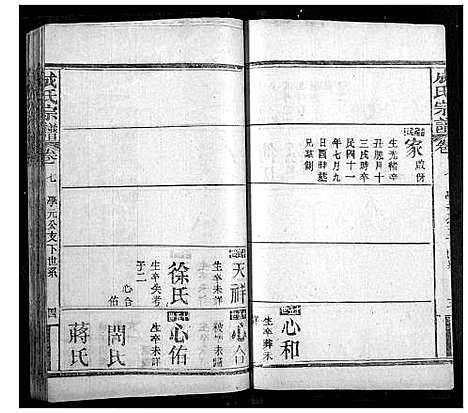 成氏宗譜
卷
家
啟份
生光緒辛
丑臘月十
三戌時卒
民四十一
年七月九
日酉時墓
兄墓側
心和
生卒葬未
詳
天祥
生卒未詳
徐氏
生卒失考
子二
心合
心佑
心合
心佑
生卒未詳
閆氏
蔣氏
成氏宗譜
卷之
七
學元公支下世系
四